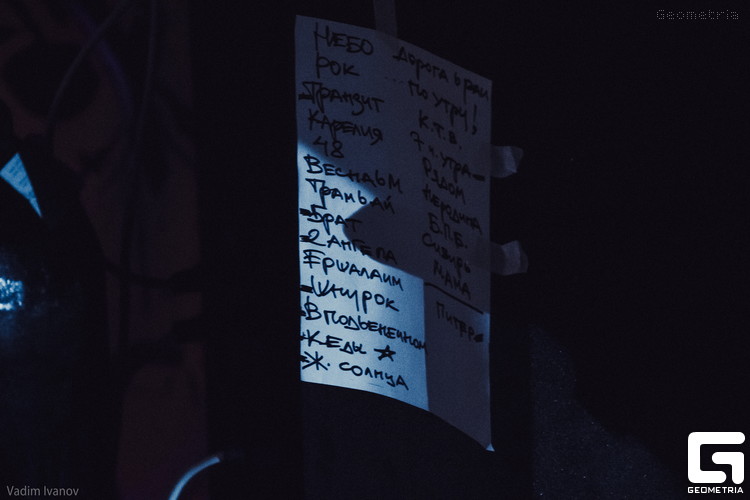 Geometria
НЕБО
РОК
ТРАНЗИТ
КАРЕЛИЯ
48
ВЕСНАЬМ
ТРАМВАЙ
БРАТ
2 АНГЕЛА
ЕРШАЛАИМ
ШНУРОК
В ПОДЬЕНЕЧНОМ
КЕДЫ ☆
Ж. СОЛНЦА
ДОРОГА В РАЙ
ПО УТРУ!
К.Т.В.
7 Ч. УТРА
РЯДОМ
НЕРОДИНА
Б.П.Б.
СИБИРЬ
МАМА
ПИТЕР
Vadim Ivanov
GEOMETRIA